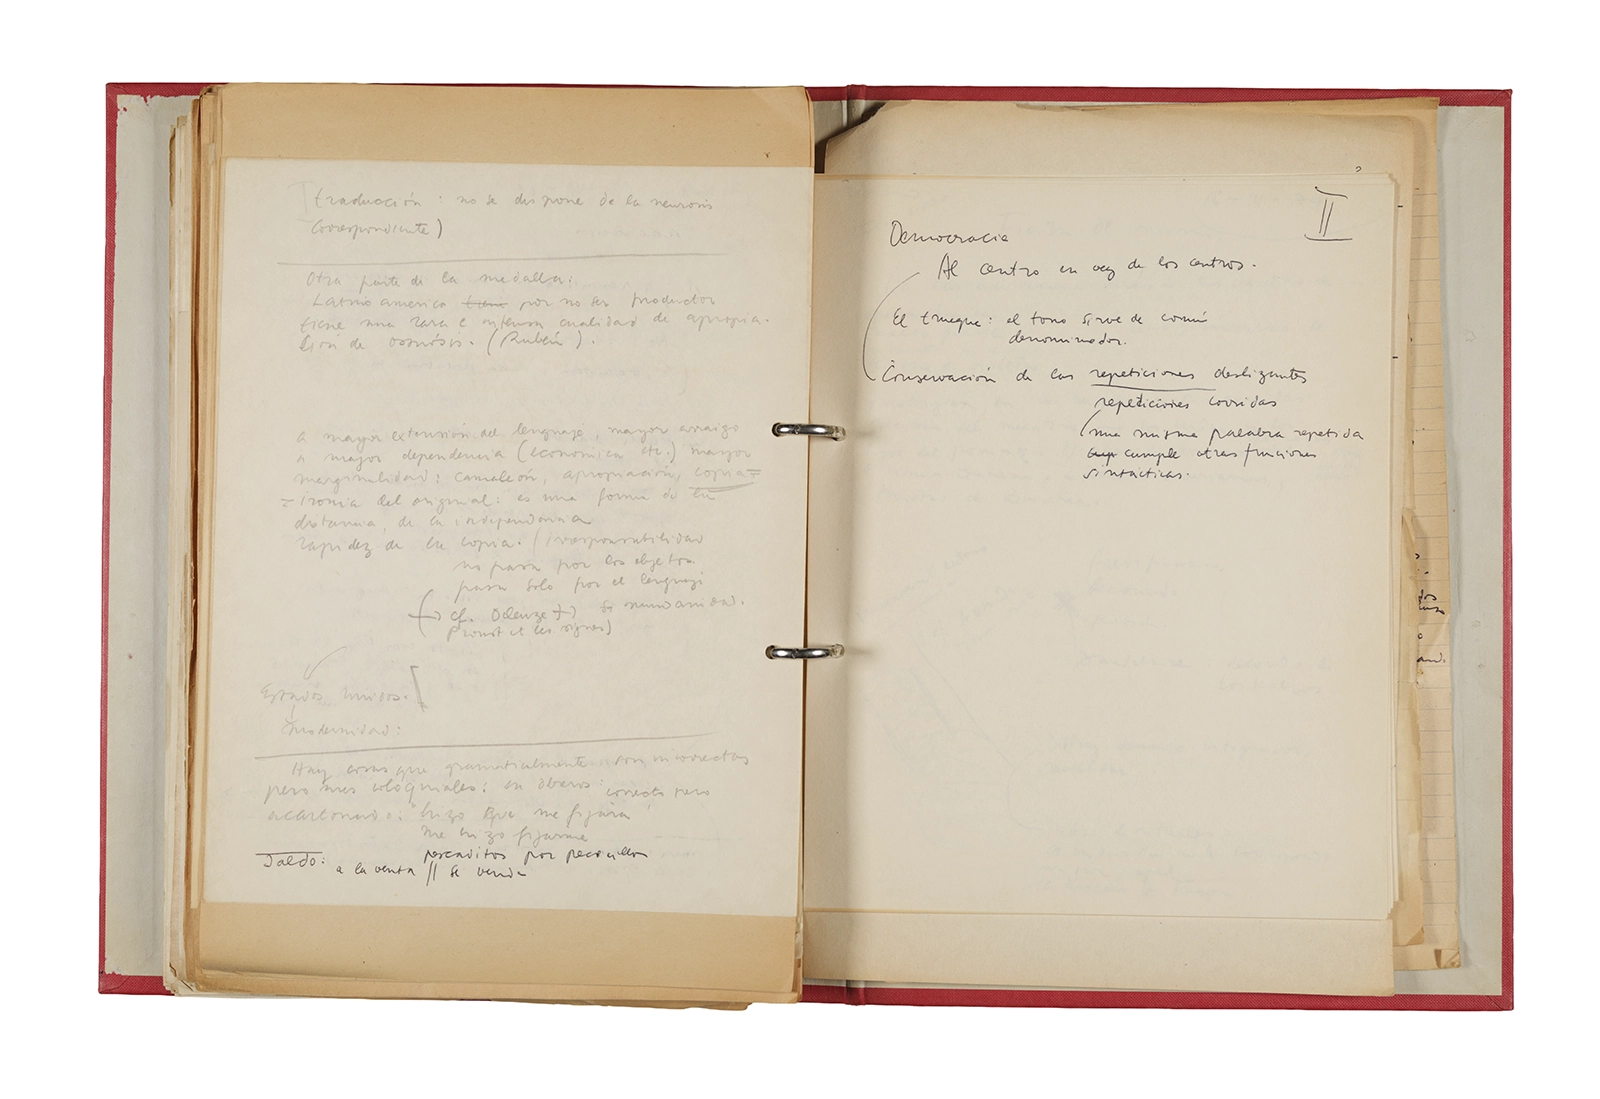 traducción: no se dispone de la neurosis
correspondiente)
Otra parte de la medalla:
Latinoamerica tiene por no ser productor
tiene una rara e intensa cualidad de apropia-
ción de ósmosis. (Rubén).
a mayor extensión del lenguaje, mayor arraigo
a mayor dependencia (económica etc.) mayor
marginalidad: camaleón, apropiación, copia=
= ironía del original: es una forma de la
distancia, de la independencia
rapidez de la copia. (irresponsabilidad
no pasa por los objetos
pasa solo por el lenguaje
cf. Deleuze
Proust et les signes)
Estados Unidos.
modernidad:
Hay cosas que gramaticalmente son incorrectas
pero mas coloquiales: en correcto pero
acartonado: hizo que me fijara
me hizo fijarme
pescaditos por
a la venta // se vende
II
Democracia
Al centro en vez de los centros.
El trueque: el tono sirve de común
denominador.
Conservación de las repeticiones deslizantes
repeticiones corridas
una misma palabra repetida
cumple otras funciones
sintácticas.